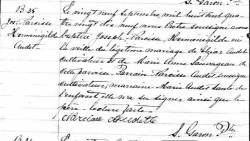 S. Garon Ptre
B. 35
Le vingt neuf Septembre, mil huit cent qua-
tre vingt dix neuf nous Prêtre soussigné avons
Jos. Narcisse
baptisé Joseph Narcisse Herménégilde né
Herménégilde
la veille du légitime mariage de Elzéar Audet
Audet
cultivateur et de Marie Anna
de cette paroisse. Parrain Narcisse Audet
cultivateur, marraine Marie Audet tante de
l'enfant qui n'a su signer, ainsi que le
père. Lecture faite.
Narcisse Audette
S. Garon Ptre